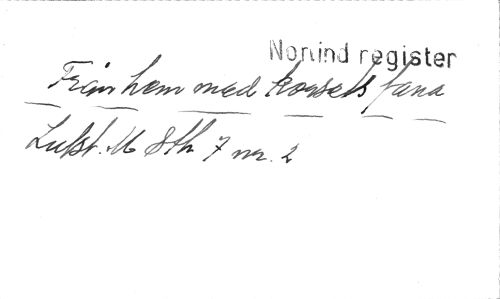 Nonind register
Fram hem med korsets fana
Lutst. M Sth 7 nr. 2